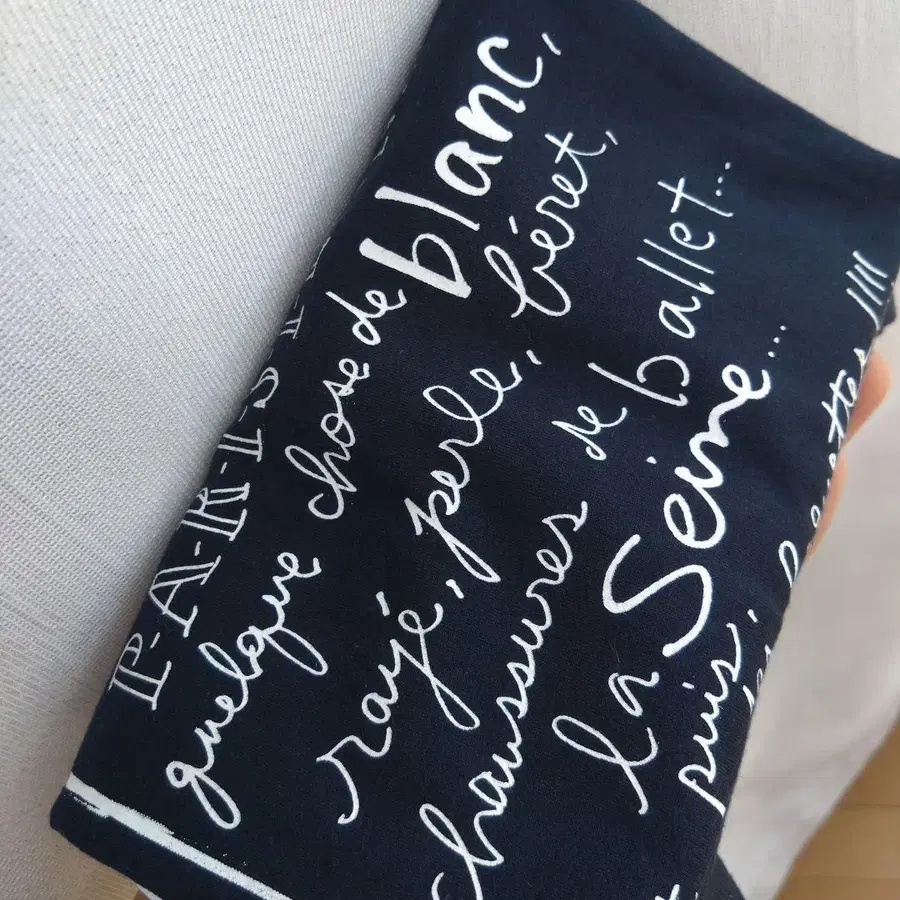 P-A-R-I-S
quelque chose de blanc,
rayé, perle, béret,
chaussures de ballet...
la Seine...
puis,